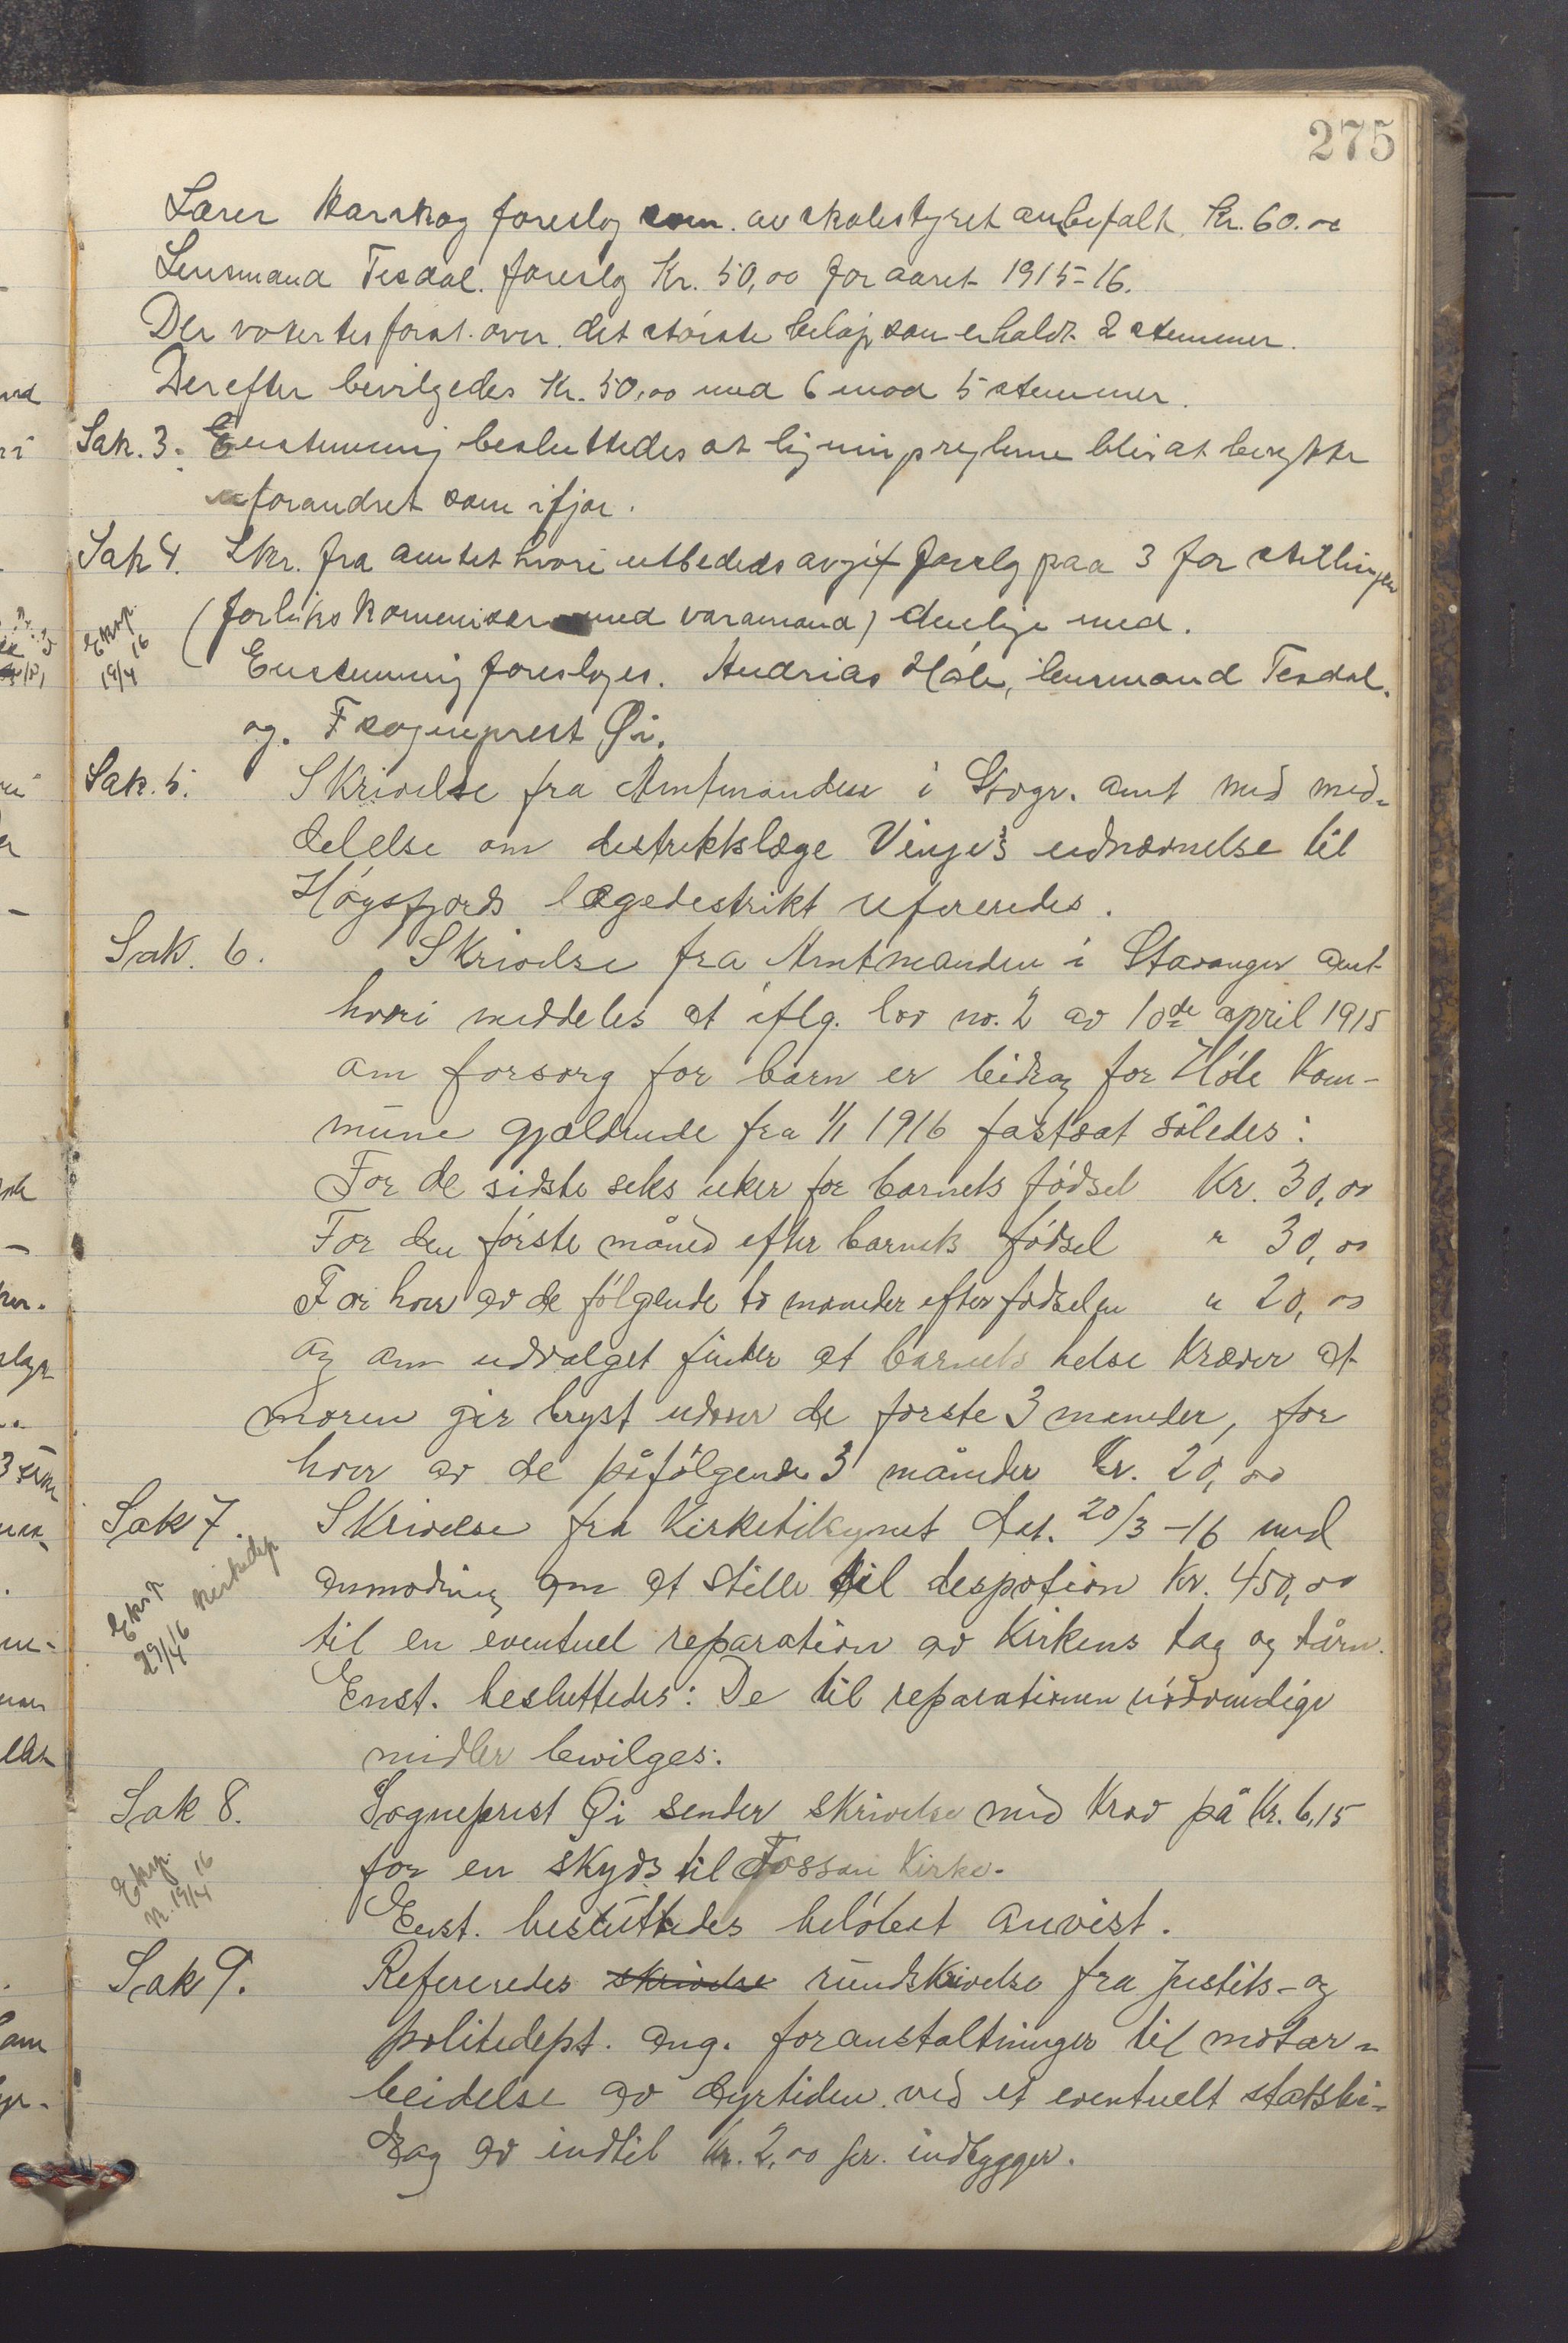 275
Lærer Harskog foreslog som av skolestyret anbefalt Kr. 60.00
Lensmand Tesdal. foreslog Kr. 50,00 for aaret 1915-16.
Der votertes først over det største beløp som erholdt 2 stemmer.
Derefter bevilgedes Kr. 50,00 med 6 mod 5 stemmer.
Sak. 3. Enstemmig besluttedes at ligningsreglerne blir at benytte
uforandret som ifjor.
Sak 4. Skr. fra amtet hvori utbededes avgit forslag paa 3 for stillingen
(forlikskommisær med varamand) duelige med.
Eksp. 19/4 16
Enstemmig foresloges. Andrias Høle, lensmand Tesdal.
og. F sogneprest Øi.
Sak. 5. Skrivelse fra Amtmanden i Stvgr. amt med med-
delelse om destriktslæge Vinje's udnævnelse til
Høgsfjords lægedestrikt refereredes.
Sak. 6. Skrivelse fra Amtmanden i Stavanger amt
hvori meddeles at iflg. lov no. 2 av 10de april 1915
om forsorg for barn er bidrag for Høle Kom-
mune gjældende fra 1/1 1916 fastsat således:
For de sidste seks uker før barnets fødsel Kr. 30,00
For den første måned efter barnets fødsel " 30,00
For hver av de følgende to maneder efter fødselen " 20,00
og om udvalget finder at barnets helse kræver at
moren gir bryst udover de første 3 maneder, for
hver av de påfølgende 3 måneder Kr. 20,00
Sak 7. Skrivelse fra Kirketilsynet dat. 20/3-16 med
Eksp. 29/4 16 Kirkedep
anmodning om at stille til desposition Kr. 450,00
til en eventuel reparation av Kirkens tag og tårn.
Enst. besluttedes: De til reparationen nødvendige
midler bevilges.
Sak 8. Sogneprest Øi sender skrivelse med krav på Kr. 6,15
for en skyds til Fossan Kirke.
Eksp. 19/4 16
Enst. besluttedes beløbet anvist.
Sak 9. Refereredes skrivelse rundskrivelse fra Justits- og
politidept. ang. foranstaltninger til motar-
beidelse av dyrtiden ved et eventuelt statsbi-
drag av indtil Kr. 2,00 pr. indbygger.